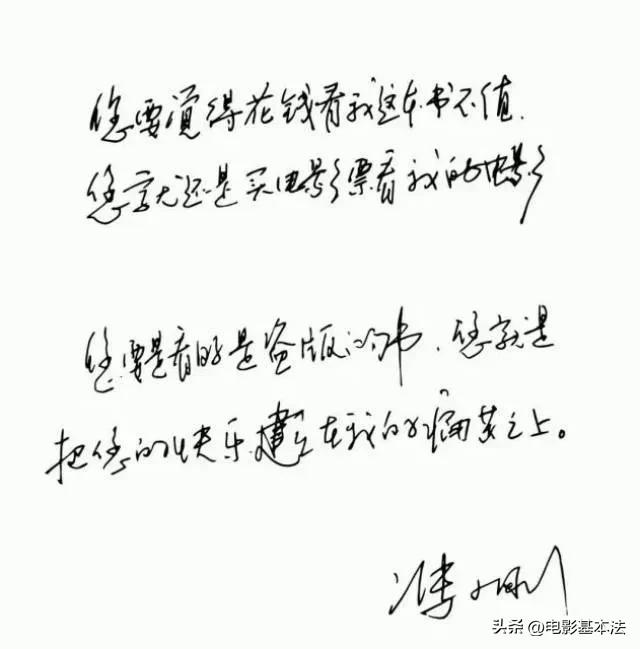 您要觉得花钱看我这本书不值,
您就还是买电影票看我的电影
您要是看的是盗版的书,您就是
把您的快乐建立在我的痛苦之上。
冯小刚
头条@电影基本法